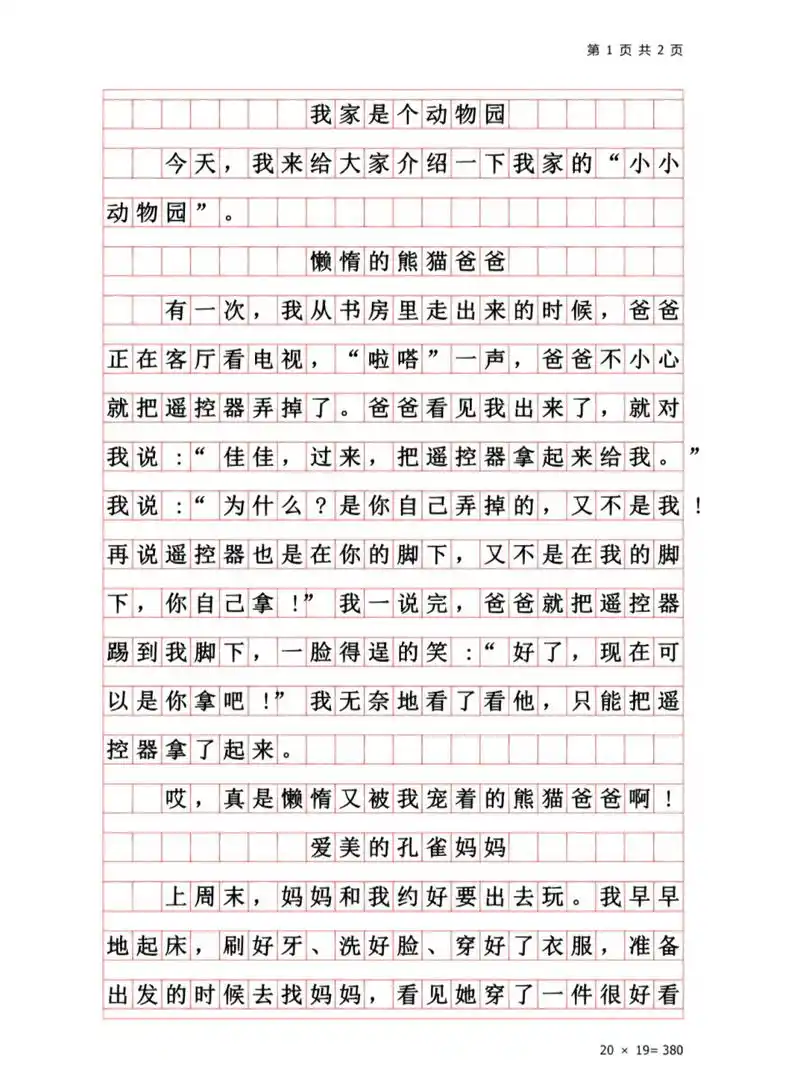 第 1 页 共 2 页
我家是个动物园
今天，我来给大家介绍一下我家的“小小
动物园”。
懒惰的熊猫爸爸
有一次，我从书房里走出来的时候，爸爸
正在客厅看电视，“啦嗒”一声，爸爸不小心
就把遥控器弄掉了。爸爸看见我出来了，就对
我说：“佳佳，过来，把遥控器拿起来给我。”
我说：“为什么？是你自己弄掉的，又不是我！
再说遥控器也是在你的脚下，又不是在我的脚
下，你自己拿！”我一说完，爸爸就把遥控器
踢到我脚下，一脸得逞的笑：“好了，现在可
以是你拿吧！”我无奈地看了看他，只能把遥
控器拿了起来。
哎，真是懒惰又被我宠着的熊猫爸爸啊！
爱美的孔雀妈妈
上周末，妈妈和我约好要出去玩。我早早
地起床，刷好牙、洗好脸、穿好了衣服，准备
出发的时候去找妈妈，看见她穿了一件很好看
20 × 19= 380